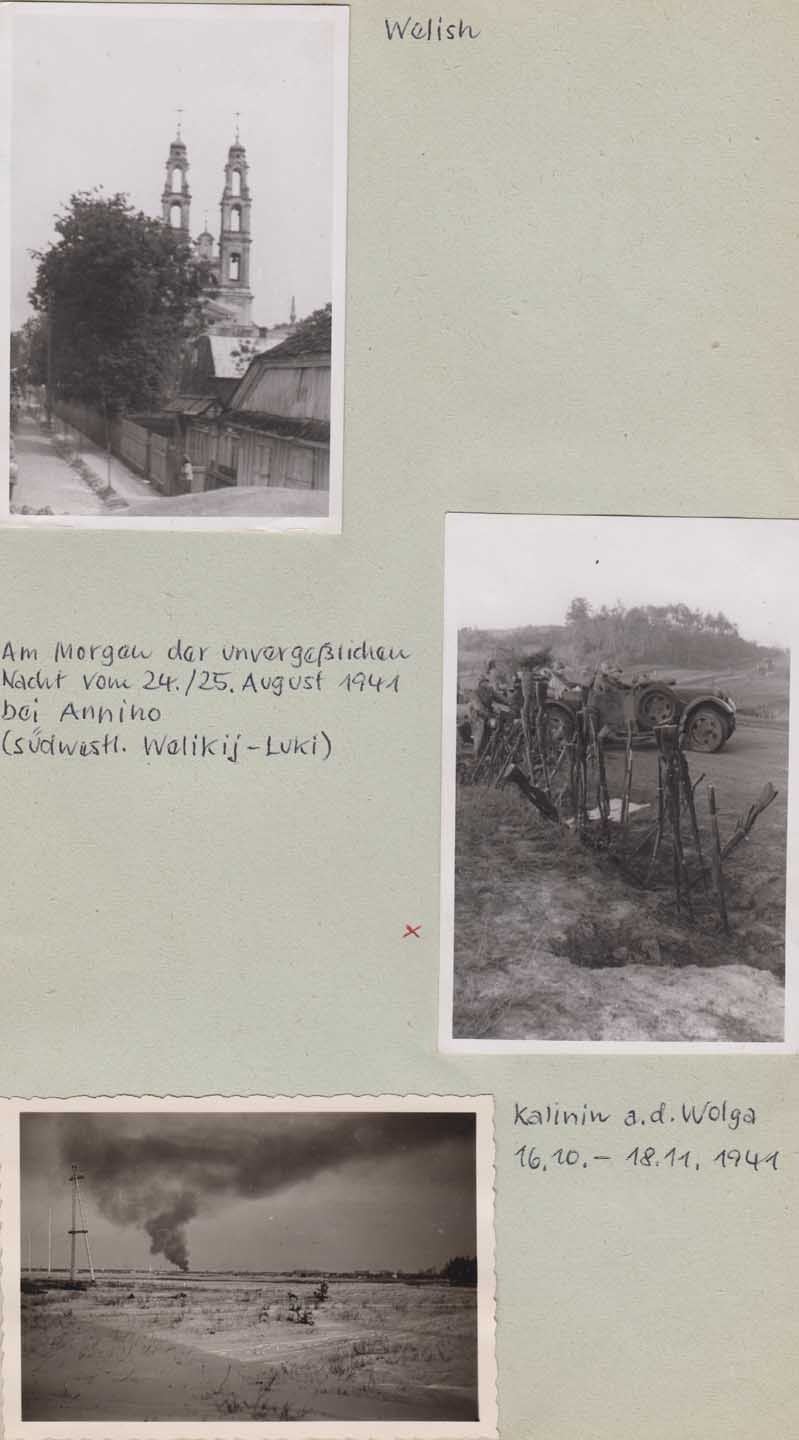 Welish
Am Morgen der unvergeßlichen
Nacht vom 24./25. August 1941
bei Annino
(südwestl. Welikij-Luki)
x
Kalinin a.d. Wolga
16.10. - 18.11. 1941